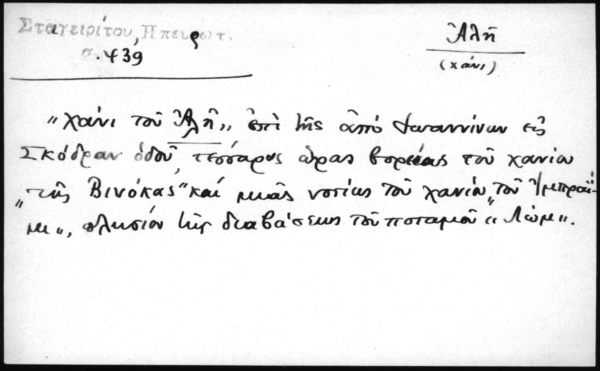 Σταγειρίτου, Ηπειρωτ.
σ. 439
Ἀλῆ
(χάνι)
"χάνι τοῦ Ἀλῆ", ἐπὶ τῆς ἀπό Ἰωαννίνων εἰς
Σκόδραν ὁδοῦ, τέσσαρας ὥρας βορείως τοῦ χανίου
"τῆς Βινόκας" καί μιᾶς νοτίως τοῦ χανίου "τοῦ Ἰμπραΐ-
μι", πλησίον τῆς διαβάσεως τοῦ ποταμοῦ "Λώμ".